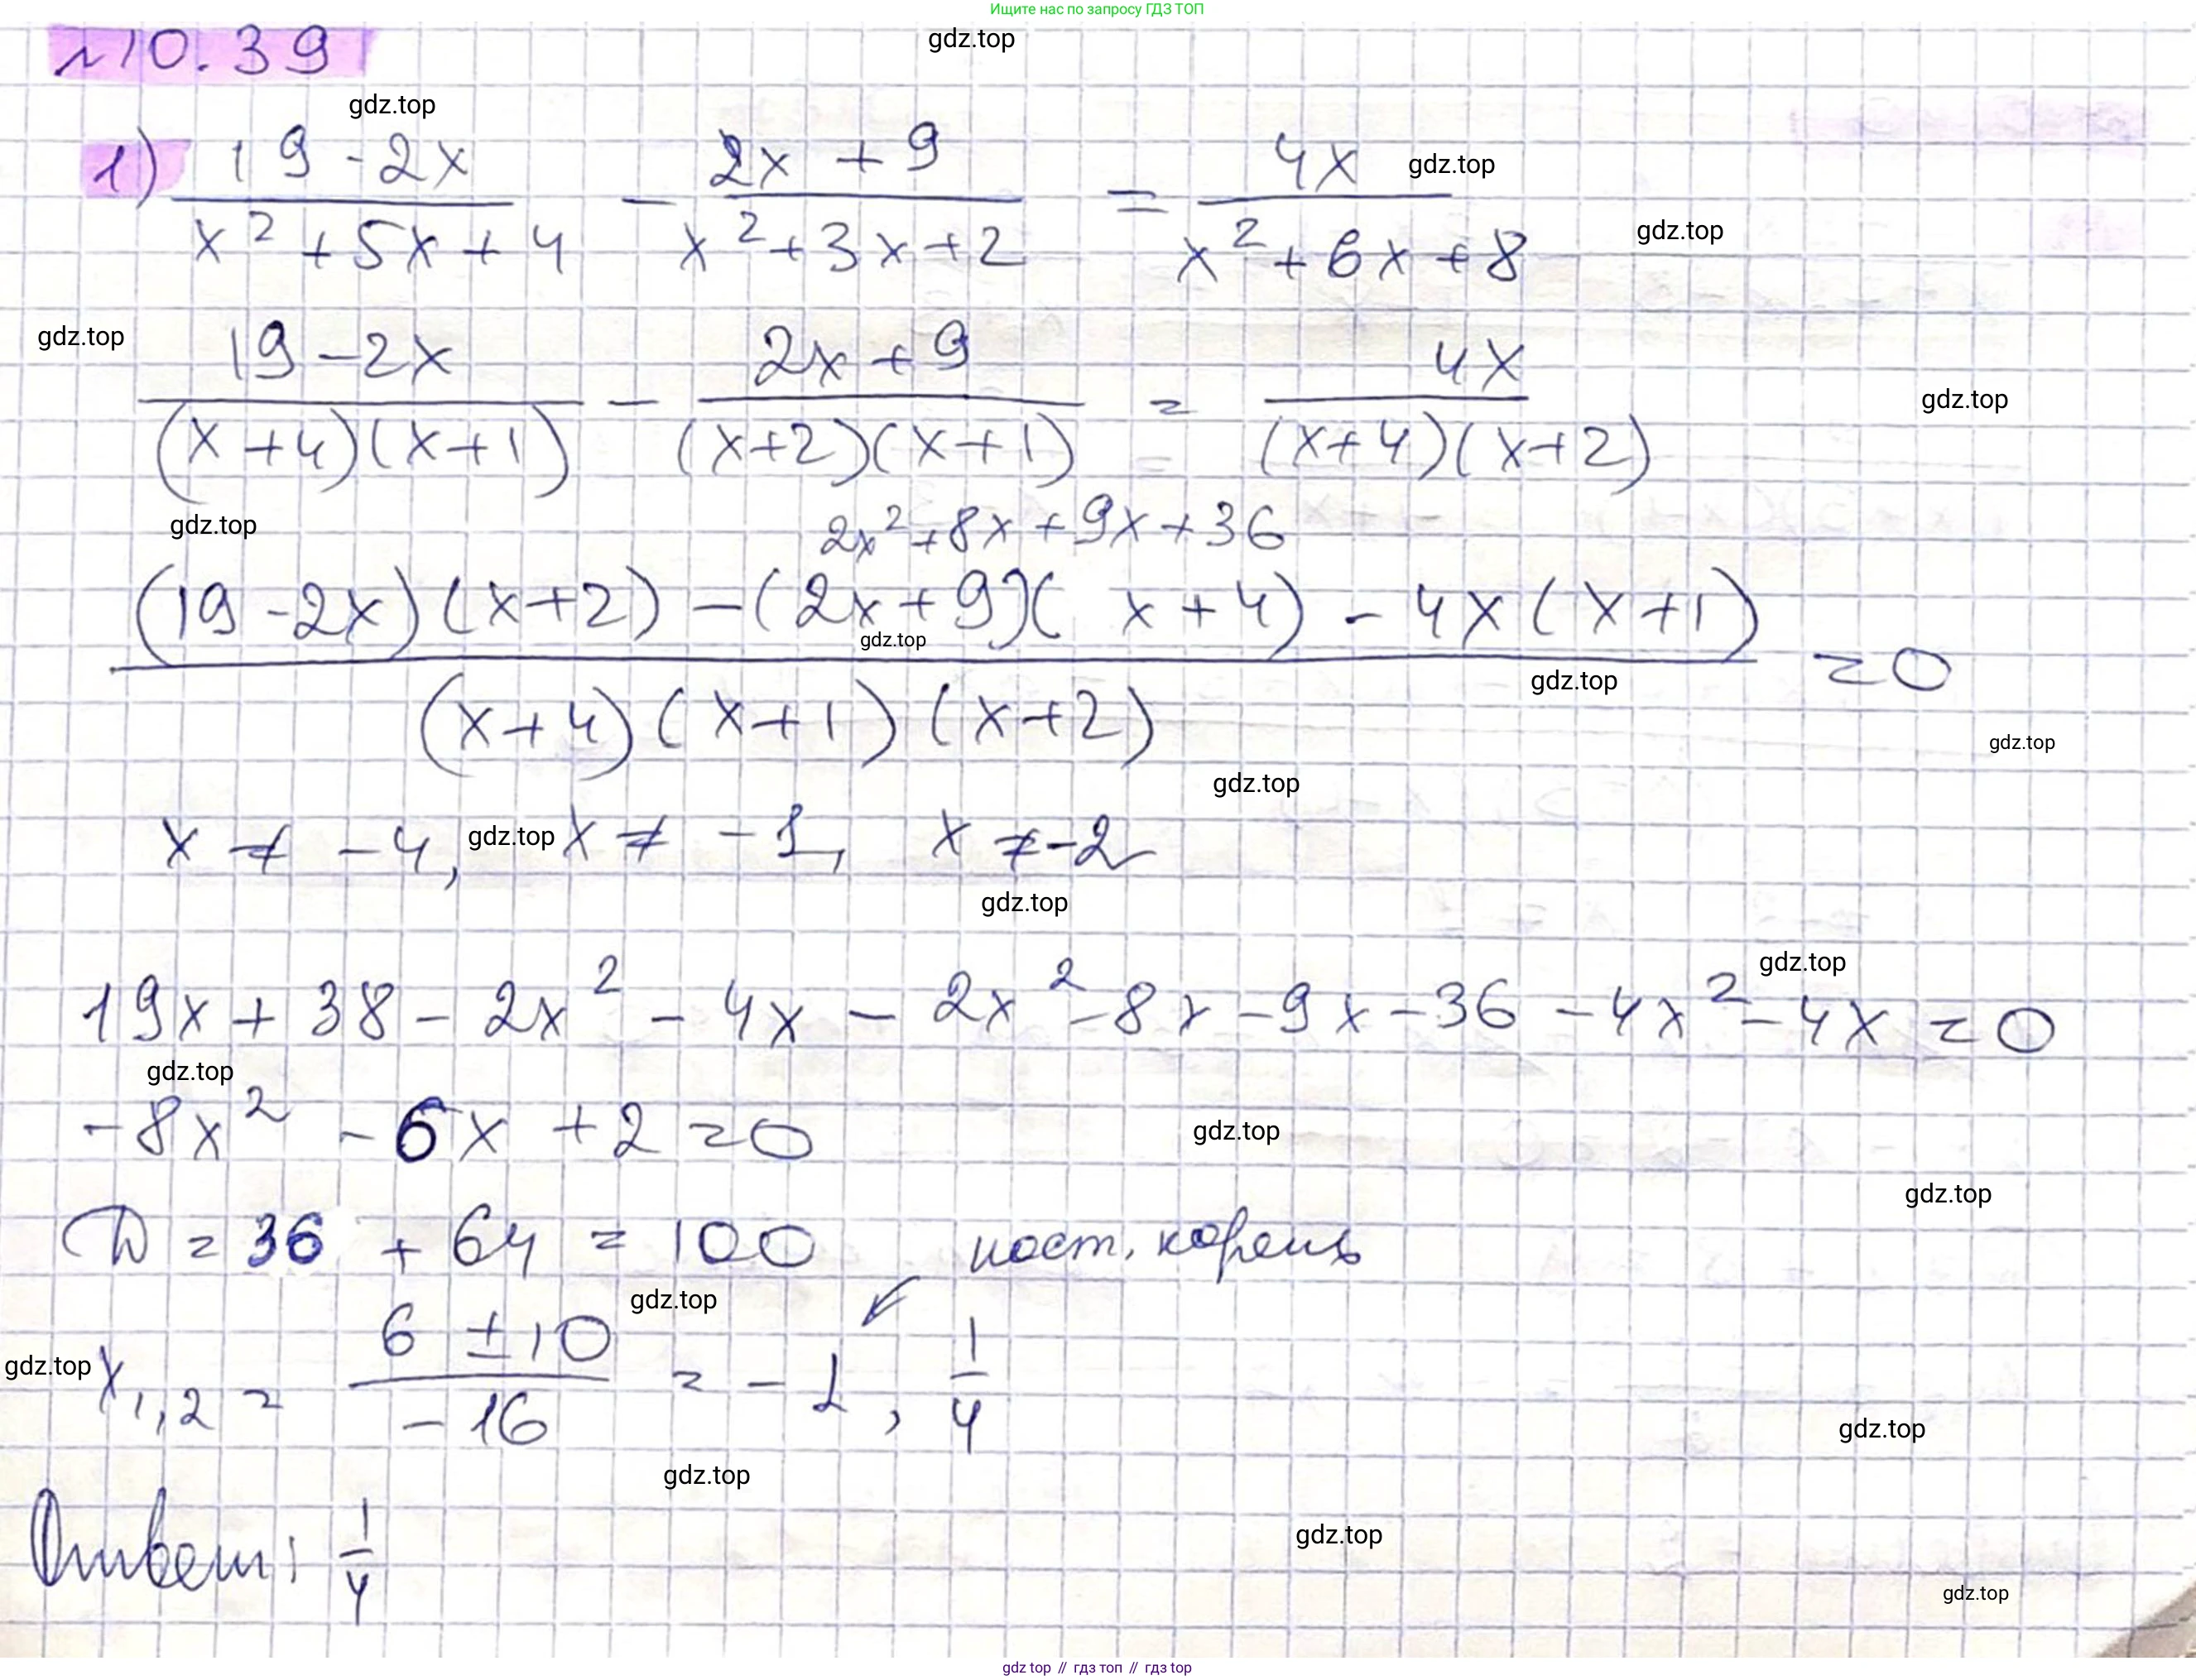 Ищите нас по запросу ГДЗ ТОП
№10.39 gdz.top
gdz.top
1) (19 - 2x)/(x² + 5x + 4) - (2x + 9)/(x² + 3x + 2) = 4x/(x² + 6x + 8) gdz.top
gdz.top
gdz.top (19 - 2x)/((x + 4)(x + 1)) - (2x + 9)/((x + 2)(x + 1)) = 4x/((x + 4)(x + 2)) gdz.top
gdz.top 2x² + 8x + 9x + 36
((19 - 2x)(x + 2) - (2x + 9)(x + 4) - 4x(x + 1))/((x + 4)(x + 1)(x + 2)) = 0
gdz.top gdz.top
gdz.top
gdz.top
x ≠ -4, gdz.top x ≠ -1, x ≠ -2
gdz.top
gdz.top
19x + 38 - 2x² - 4x - 2x² - 8x - 9x - 36 - 4x² - 4x = 0
gdz.top
-8x² - 6x + 2 = 0 gdz.top
gdz.top
D = 36 + 64 = 100 пост. корень
gdz.top ↙
gdz.top x₁,₂ = (6 ± 10)/(-16) = -1, 1/4
gdz.top
gdz.top
Ответ: 1/4 gdz.top
gdz.top
gdz.top // гдз топ // гдз top